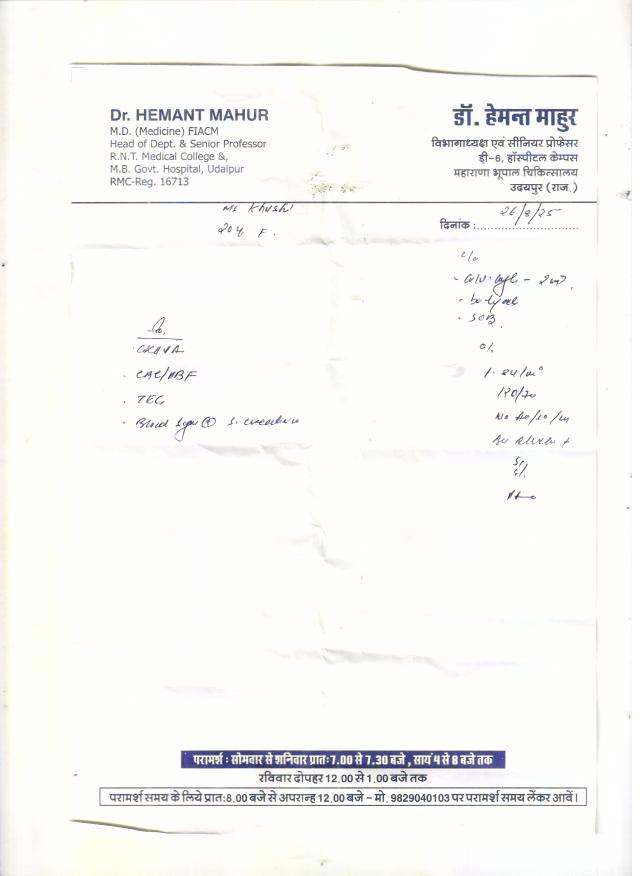 Dr. HEMANT MAHUR
M.D. (Medicine) FIACM
Head of Dept. & Senior Professor
R.N.T. Medical College &,
M.B. Govt. Hospital, Udaipur
RMC-Reg. 16713
डॉ. हेमन्त माहुर
विभागाध्यक्ष एवं सीनियर प्रोफेसर
डी-6, हॉस्पीटल केम्पस
महाराणा भूपाल चिकित्सालय
उदयपुर (राज.)
Ms Khushi
20y F.
दिनांक : 26/8/25
c/o
- SOB
o/e
120/70
- CBC/PBF
- TEC
- Blood Sugar (R) S. creatinine
परामर्श : सोमवार से शनिवार प्रातः7.00 से 7.30 बजे , सायं 4 से 8 बजे तक
रविवार दोपहर 12.00 से 1.00 बजे तक
परामर्श समय के लिये प्रातः8.00 बजे से अपरान्ह 12.00 बजे – मो. 9829040103 पर परामर्श समय लेंकर आवें।